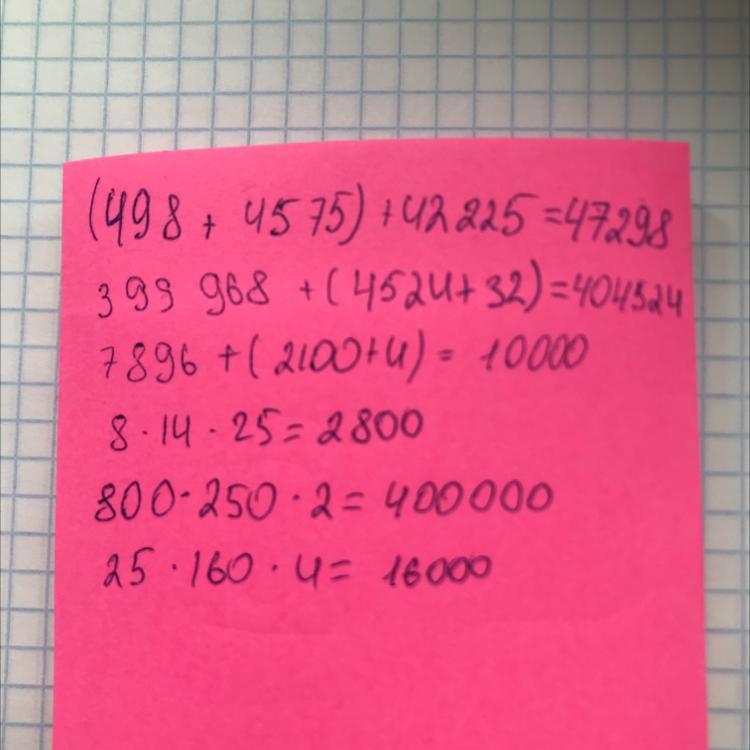 (498 + 4575) + 42 225 = 47298
399 968 + (4524 + 32) = 404524
7896 + (2100 + 4) = 10000
8 · 14 · 25 = 2800
800 · 250 · 2 = 400000
25 · 160 · 4 = 16000